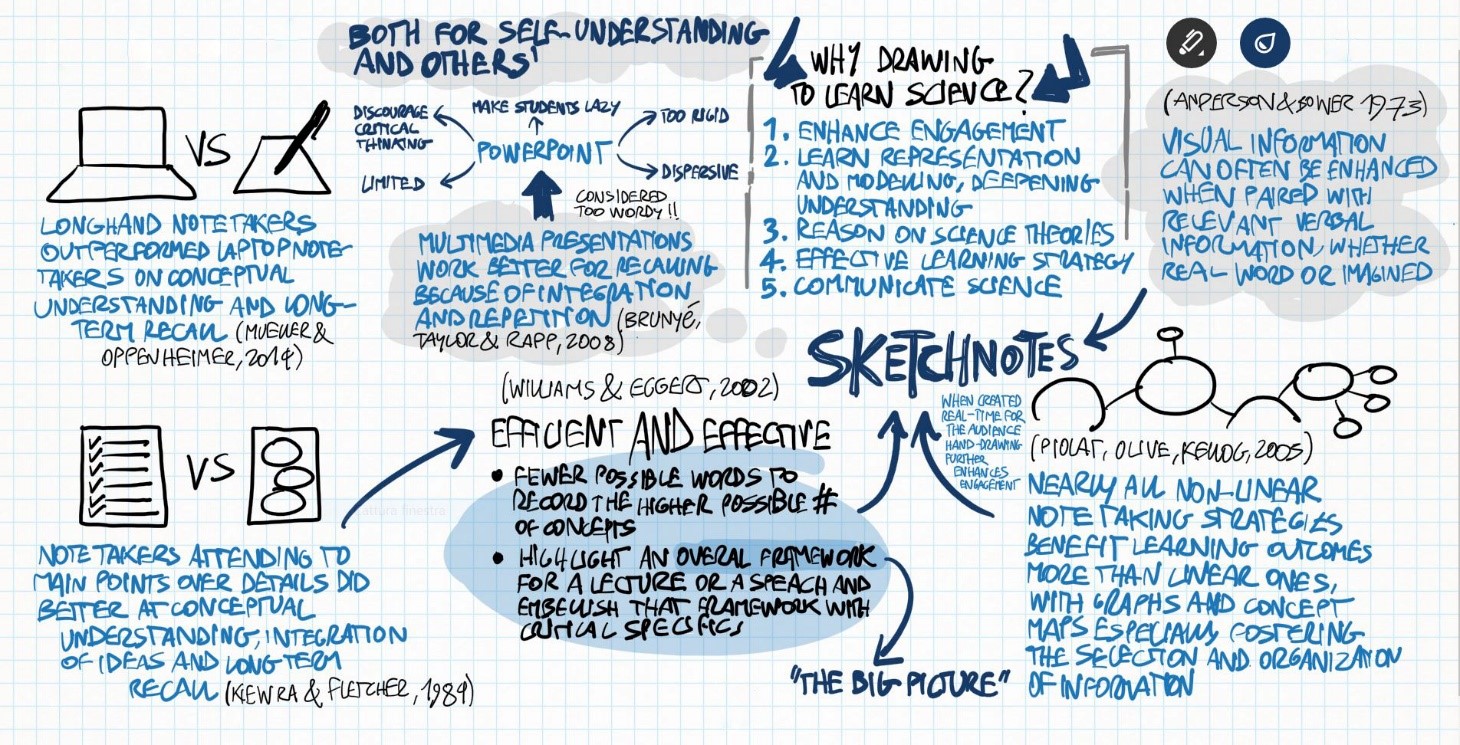 BOTH FOR SELF-UNDERSTANDING
AND OTHERS'
VS
LONGHAND NOTETAKERS
OUTPERFORMED LAPTOP NOTE-
TAKERS ON CONCEPTUAL
UNDERSTANDING AND LONG-
TERM RECALL (MUELLER &
OPPENHEIMER, 2014)
DISCOURAGE
CRITICAL
THINKING
MAKE STUDENTS LAZY
TOO RIGID
POWERPOINT
LIMITED
DISPERSIVE
CONSIDERED
TOO WORDY!!
MULTIMEDIA PRESENTATIONS
WORK BETTER FOR RECALLING
BECAUSE OF INTEGRATION
AND REPETITION (BRUNYÉ,
TAYLOR & RAPP, 2008)
WHY DRAWING
TO LEARN SCIENCE?
1. ENHANCE ENGAGEMENT
2. LEARN REPRESENTATION
AND MODELLING, DEEPENING
UNDERSTANDING
3. REASON ON SCIENCE THEORIES
4. EFFECTIVE LEARNING STRATEGY
5. COMMUNICATE SCIENCE
(ANDERSON & BOWER 1973)
VISUAL INFORMATION
CAN OFTEN BE ENHANCED
WHEN PAIRED WITH
RELEVANT VERBAL
INFORMATION, WHETHER
REAL WORD OR IMAGINED
SKETCHNOTES
WHEN CREATED
REAL-TIME FOR
THE AUDIENCE
HAND-DRAWING
FURTHER
ENHANCES
ENGAGEMENT
VS
NOTETAKERS ATTENDING TO
MAIN POINTS OVER DETAILS DID
BETTER AT CONCEPTUAL
UNDERSTANDING, INTEGRATION
OF IDEAS AND LONG-TERM
RECALL (KIEWRA & FLETCHER, 1984)
(WILLIAMS & EGGERT, 2002)
EFFICIENT AND EFFECTIVE
• FEWER POSSIBLE WORDS TO
RECORD THE HIGHER POSSIBLE #
OF CONCEPTS
• HIGHLIGHT AN OVERAL FRAMEWORK
FOR A LECTURE OR A SPEACH AND
EMBELLISH THAT FRAMEWORK WITH
CRITICAL SPECIFICS
"THE BIG PICTURE"
(PIOLAT, OLIVE, KELLOG, 2005)
NEARLY ALL NON-LINEAR
NOTE TAKING STRATEGIES
BENEFIT LEARNING OUTCOMES
MORE THAN LINEAR ONES,
WITH GRAPHS AND CONCEPT
MAPS ESPECIALLY FOSTERING
THE SELECTION AND ORGANIZATION
OF INFORMATION